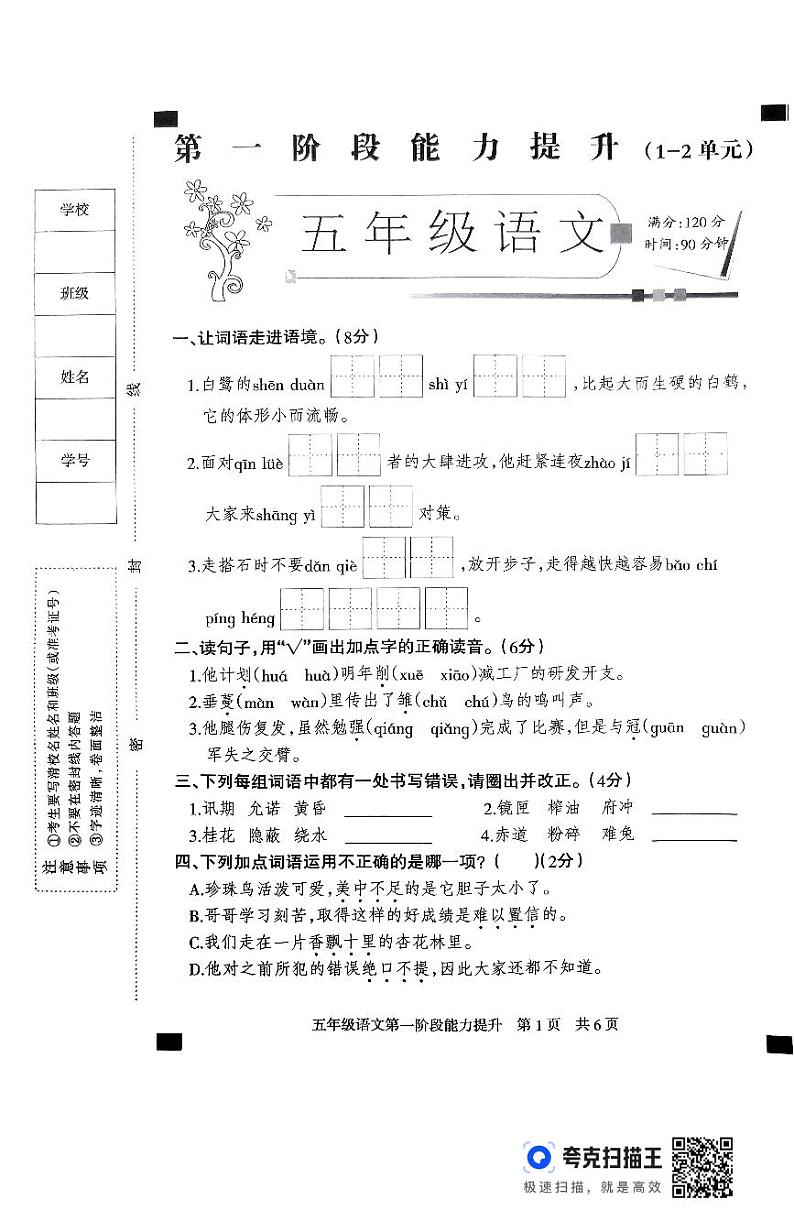 第一阶段能力提升(1-2单元)
五年级语文
满分:120分
时间:90分钟
学校
班级
姓名
学号
线
封
密
注意事项
①考生要写清校名姓名和班级(或准考证号)
②不要在密封线内答题
③字迹清晰,卷面整洁
一、让词语走进语境。(8分)
1.白鹭的shēn duàn shì yí ,比起大而生硬的白鹤,
它的体形小而流畅。
2.面对qīn lüè 者的大肆进攻,他赶紧连夜zhào jí
大家来shāng yì 对策。
3.走搭石时不要dǎn qiè ,放开步子,走得越快越容易bǎo chí
píng héng 。
二、读句子,用“√”画出加点字的正确读音。(6分)
1.他计划(huá huà)明年削(xuē xiāo)减工厂的研发开支。
2.垂蔓(màn wàn)里传出了雏(chǔ chú)鸟的鸣叫声。
3.他腿伤复发,虽然勉强(qiáng qiǎng)完成了比赛,但是与冠(guān guàn)
军失之交臂。
三、下列每组词语中都有一处书写错误,请圈出并改正。(4分)
1.讯期 允诺 黄昏 ________ 2.镜匣 榨油 府冲 ________
3.桂花 隐蔽 绕水 ________ 4.赤道 粉碎 难兔 ________
四、下列加点词语运用不正确的是哪一项?( )(2分)
A.珍珠鸟活泼可爱,美中不足的是它胆子太小了。
B.哥哥学习刻苦,取得这样的好成绩是难以置信的。
C.我们走在一片香飘十里的杏花林里。
D.他对之前所犯的错误绝口不提,因此大家还都不知道。
五年级语文第一阶段能力提升 第1页 共6页
夸克扫描王
极速扫描,就是高效